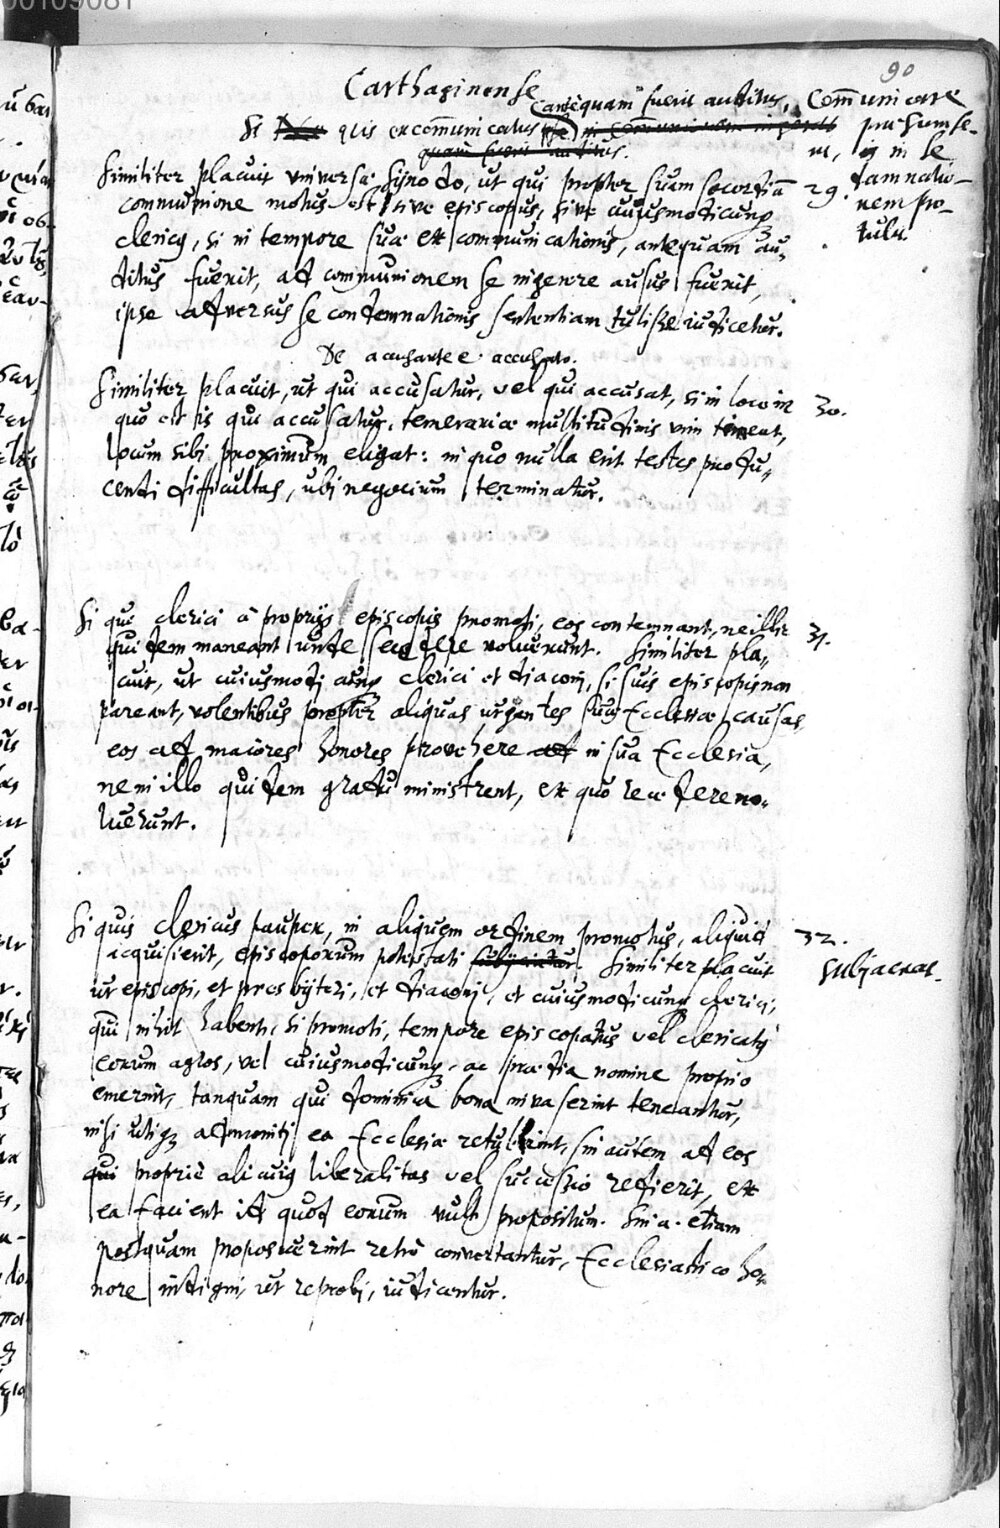 90
Carthaginense
Si quis excommunicatus antequam fuerit auditus, Communicare
præsumse-
rit, is in se
damnatio-
nem pro-
tulit.
Similiter placuit universæ Synodo, ut qui propter suam socordiā 29.
communione motus est, sive episcopus, sive cujusmodicunq;
clericq, si in tempore suæ excommunicationis, antequam au-
ditus fuerit, ad communionem se ingerere ausus fuerit,
ipse adversus se condemnationis sententiam tulisse judicetur.
De accusante et accusato.
Similiter placuit, ut qui accusatur, vel qui accusat, si in loco in 30.
quo est is qui accusatur, temerariæ multitudinis vim timeat,
locum sibi proximum eligat: in quo nulla erit testes produ-
cendi difficultas, ubi negocium terminatur.
Si qui clerici à proprijs episcopis promoti, eos contemnant, ne illic 31.
quidem maneant unde secedere voluerunt. Similiter pla-
cuit, ut cuiusmodi cunq clerici et diaconi, si suis episcopis non
pareant, volentibus propter aliquas urgentes suæ Ecclesiæ causas
eos ad maiores honores provehere in sua Ecclesia,
ne in illo quidem gradu ministrent, ex quo recedere no-
luerunt.
Si quis clericus pauper, in aliquem ordinem promotus, aliquid 32.
acquisierit, episcoporum potestati subjaceat. Similiter placuit
ut episcopi, et presbyteri, et diaconi, et cuiusmodicunq clerici,
qui nihil habent, si promoti, tempore episcopatus vel clericatq
eorum agros, vel cuiusmodicunq, ac prædia nomine proprio
emerint, tanquam qui dominica bona invaserint teneantur,
nisi utiq; admoniti ea Ecclesiæ retulerint, sin autem ad eos
qui propriè alicuiq liberalitas vel successio redierit, ex
ea facient id quod eorum vult propositum. Sin a. etiam
postquam proposuerint retrò convertantur, Ecclesiastico ho-
nore indigni, ut reprobi, judicentur.